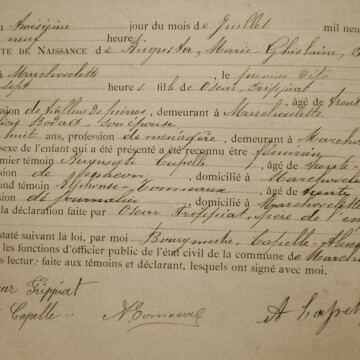 troisième jour du mois de Juillet mil neuf
neuf heures
TE DE NAISSANCE de Augusta, Marie-Ghislaine,
à Marchovelette, le premier
sept heures fille de Oscar Frippiat, âgé de
sion de tailleur de pierres, demeurant à Marchovelette
Bodart son épouse
huit ans, profession de ménagère, demeurant à Marchov
sexe de l'enfant qui a été présenté a été reconnu être féminin
mier témoin Auguste Capelle, âgé de trente-
sion de maçon, domicilié à Marchovele
ond témoin Alphonse Commeaux, âgé de trente
sion de journalier, domicilié à Marchovelette
la déclaration faite par Oscar Frippiat, père de l'en
staté suivant la loi, par moi Bourgmestre, Capelle
les fonctions d'officier public de l'état civil de la commune de March
s lecture faite aux témoins et déclarant, lesquels ont signé avec moi.
Frippiat
Capelle